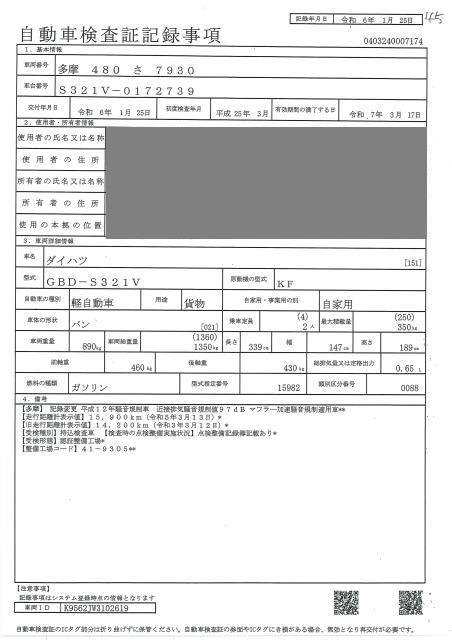 記録年月日 令和 6年 1月 25日
45
自動車検査証記録事項
0403240007174
1. 基本情報
車両番号 多摩 480 さ 7930
車台番号 S321V-0172739
交付年月日 令和 6年 1月 25日 初度検査年月 平成 25年 3月 有効期間の満了する日 令和 7年 3月 17日
2. 使用者・所有者情報
使用者の氏名又は名称
使用者の住所
所有者の氏名又は名称
所有者の住所
使用の本拠の位置
3. 車両詳細情報
車名 ダイハツ [151]
型式 GBD-S321V 原動機の型式 KF
自動車の種別 軽自動車 用途 貨物 自家用・事業用の別 自家用
車体の形状 バン [021] 乗車定員 (4) 2人 最大積載量 (250) 350kg
車両重量 890kg 車両総重量 (1360) 1350kg 長さ 339cm 幅 147cm 高さ 189cm
前軸重 460kg 後軸重 430kg 総排気量又は定格出力 0.65 L
燃料の種類 ガソリン 型式指定番号 15982 類別区分番号 0088
4. 備考
【多摩】 記録変更 平成12年騒音規制車 近接排気騒音規制値97dB マフラー加速騒音規制適用車**
【走行距離計表示値】15,900km(令和5年3月13日)*
【旧走行距離計表示値】14,200km(令和3年3月12日)*
【受検種別】持込検査車 【検査時の点検整備実施状況】点検整備記録簿記載あり*
【受検形態】認証整備工場*
【整備工場コード】41-9305**
【注意事項】
記録事項はシステム登録時点の情報となります
車両ID K9562JW3102619
自動車検査証のICタグ部分は折り曲げずに保管ください。自動車検査証の券面やICタグにき損がある場合、無効となり再交付が必要です。